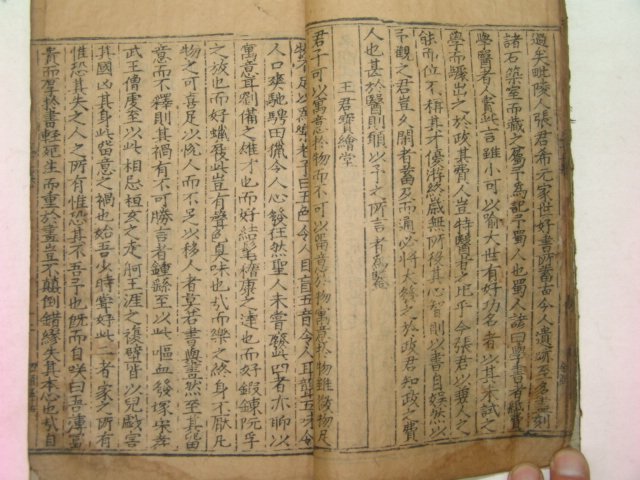 過矣毗陵人張君希元家世好書所蓄古今人遺跡至多盡刻
諸石築室而藏之屬予爲記予蜀人也蜀人諺曰學書者紙費
學醫者人費此言雖小可以喻大世有好功名者以其未試之
學而驟出之於政其費人豈特醫者之比乎今張君以兼人之
能而位不稱其才優游終歲無所役其心智則以書自娛然以
予觀之君豈久閑者蓄而通必將大發之於政君知政之費
人也甚於醫則願以予之所言者爲鑒
王君寶繪堂
君子可以寓意於物而不可以留意於物寓意於物雖微物足
物不足以爲病老子曰五色令人目盲五音令人耳聾五味令
人口爽馳騁田獵令人心發狂然聖人未嘗廢此四者亦聊以
寓意耳劉備之雄才也而好結髦嵇康之達也而好鍛鍊阮孚
之放也而好蠟屐此豈有聲色臭味也哉而樂之終身不厭凡
物之可喜足以悅人而不足以移人者莫若書與畫然至其留
意而不釋則其禍有不可勝言者鍾繇至以此嘔血發塚宋孝
武王僧虔至以此相忌桓玄之走舸王涯之複壁皆以兒戲害
其國凶其身此留意之禍也始吾少時嘗好此二者家之所有
惟恐其失之人之所有惟恐其不吾予也既而自咲曰吾薄富
貴而厚於書輕死生而重於畫豈不顛倒錯繆失其本心也哉自